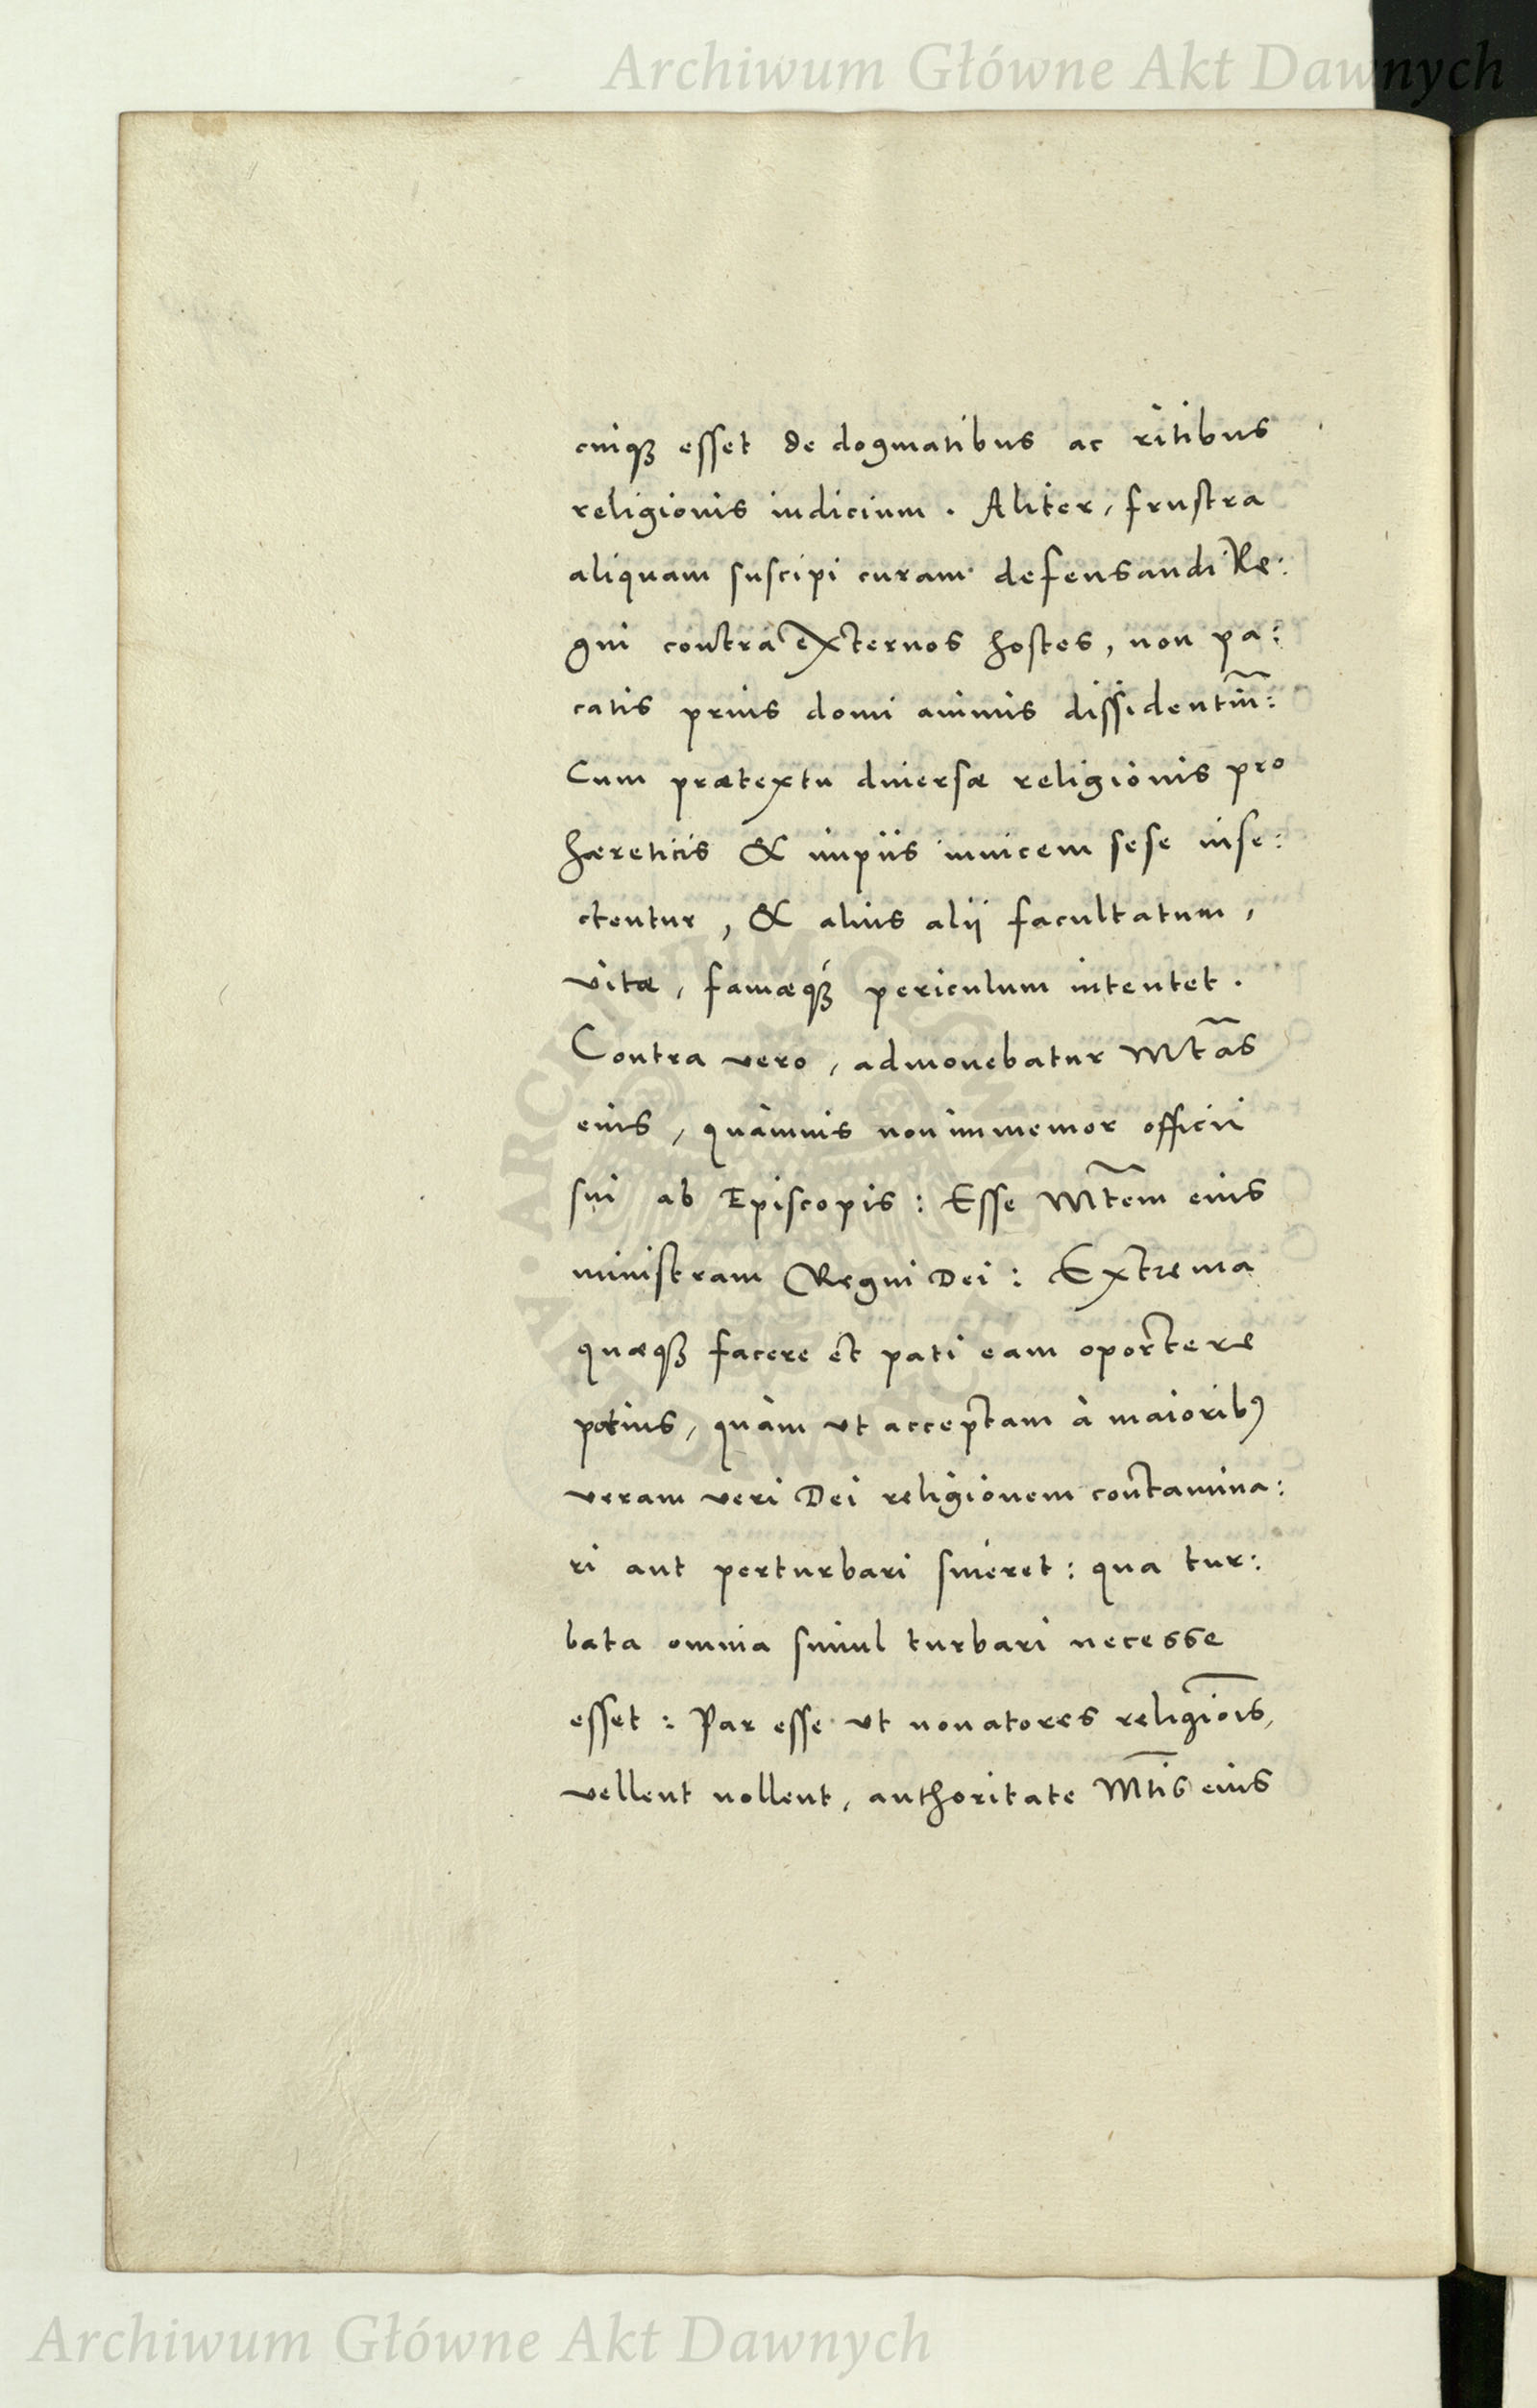 Archiwum Główne Akt Dawnych
cuiqꝫ esset de dogmatibus ac ritibus
religionis iudicium. Aliter, frustra
aliquam suscipi curam defensandi Re:
gni contra externos hostes, non pa:
catis prius domi animis dissidentiũ:
Cum prætextu diuersæ religionis pro
hæreticis & impiis inuicem sese inse:
ctentur, & alius alii facultatum,
vitæ, famæqꝫ periculum intentet.
Contra vero, admonebatur Mtãs
eius, quàmuis non immemor officii
sui ab Episcopis: Esse Mtẽm eius
ministram Regni Dei: Extrema
quæqꝫ facere et pati eam oportere
potius, quàm ut acceptam à maioribꝰ
veram veri Dei religionem contamina:
ri aut perturbari sineret: qua tur:
bata omnia simul turbari necesse
esset: Par esse ut nouatores religiõis,
vellent nollent, authoritate Mtĩs eius
ARCHIWUM GŁÓWNE AKT DAWNYCH
Archiwum Główne Akt Dawnych